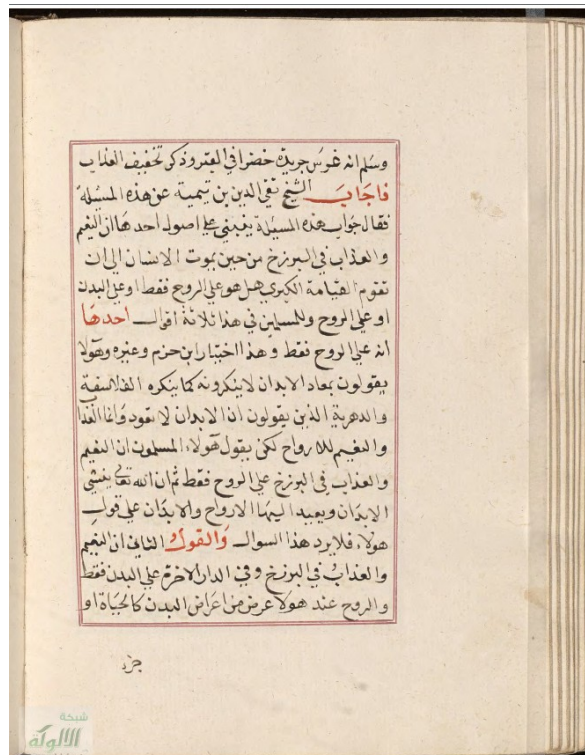 وسلم انه غرس جريدة خضرا في القبر وذكر تخفيف العذاب
فاجاب الشيخ تقي الدين بن تيمية عن هذه المسيلة
فقال جواب هذه المسيلة ينبني علي اصول احدها ان النعيم
والعذاب في البرزخ من حين يموت الانسان الي ان
تقوم القيامة الكبري هل هو علي الروح فقط او علي البدن
او علي الروح وللمسلمين في هذا ثلاثة اقوال احدها
انه علي الروح فقط وهذا اختيار ابن حزم وغيره وهولا
يقولون بمعاد الابدان لا ينكرونه كما ينكره الفلاسفة
والدهرية الذين يقولون ان الابدان لا تعود وانما العذا
والنعيم للارواح لكن يقول هولاء المسلمون ان النعيم
والعذاب في البرزخ علي الروح فقط ثم ان الله تعالي ينشي
الابدان ويعيد اليها الارواح والابدان علي قول
هولاء فلا يرد هذا السوال والقول الثاني ان النعيم
والعذاب في البرزخ وفي الدار الاخرة علي البدن فقط
والروح عند هولا عرض من اعراض البدن كالحياة او
شبكة
الألوكة